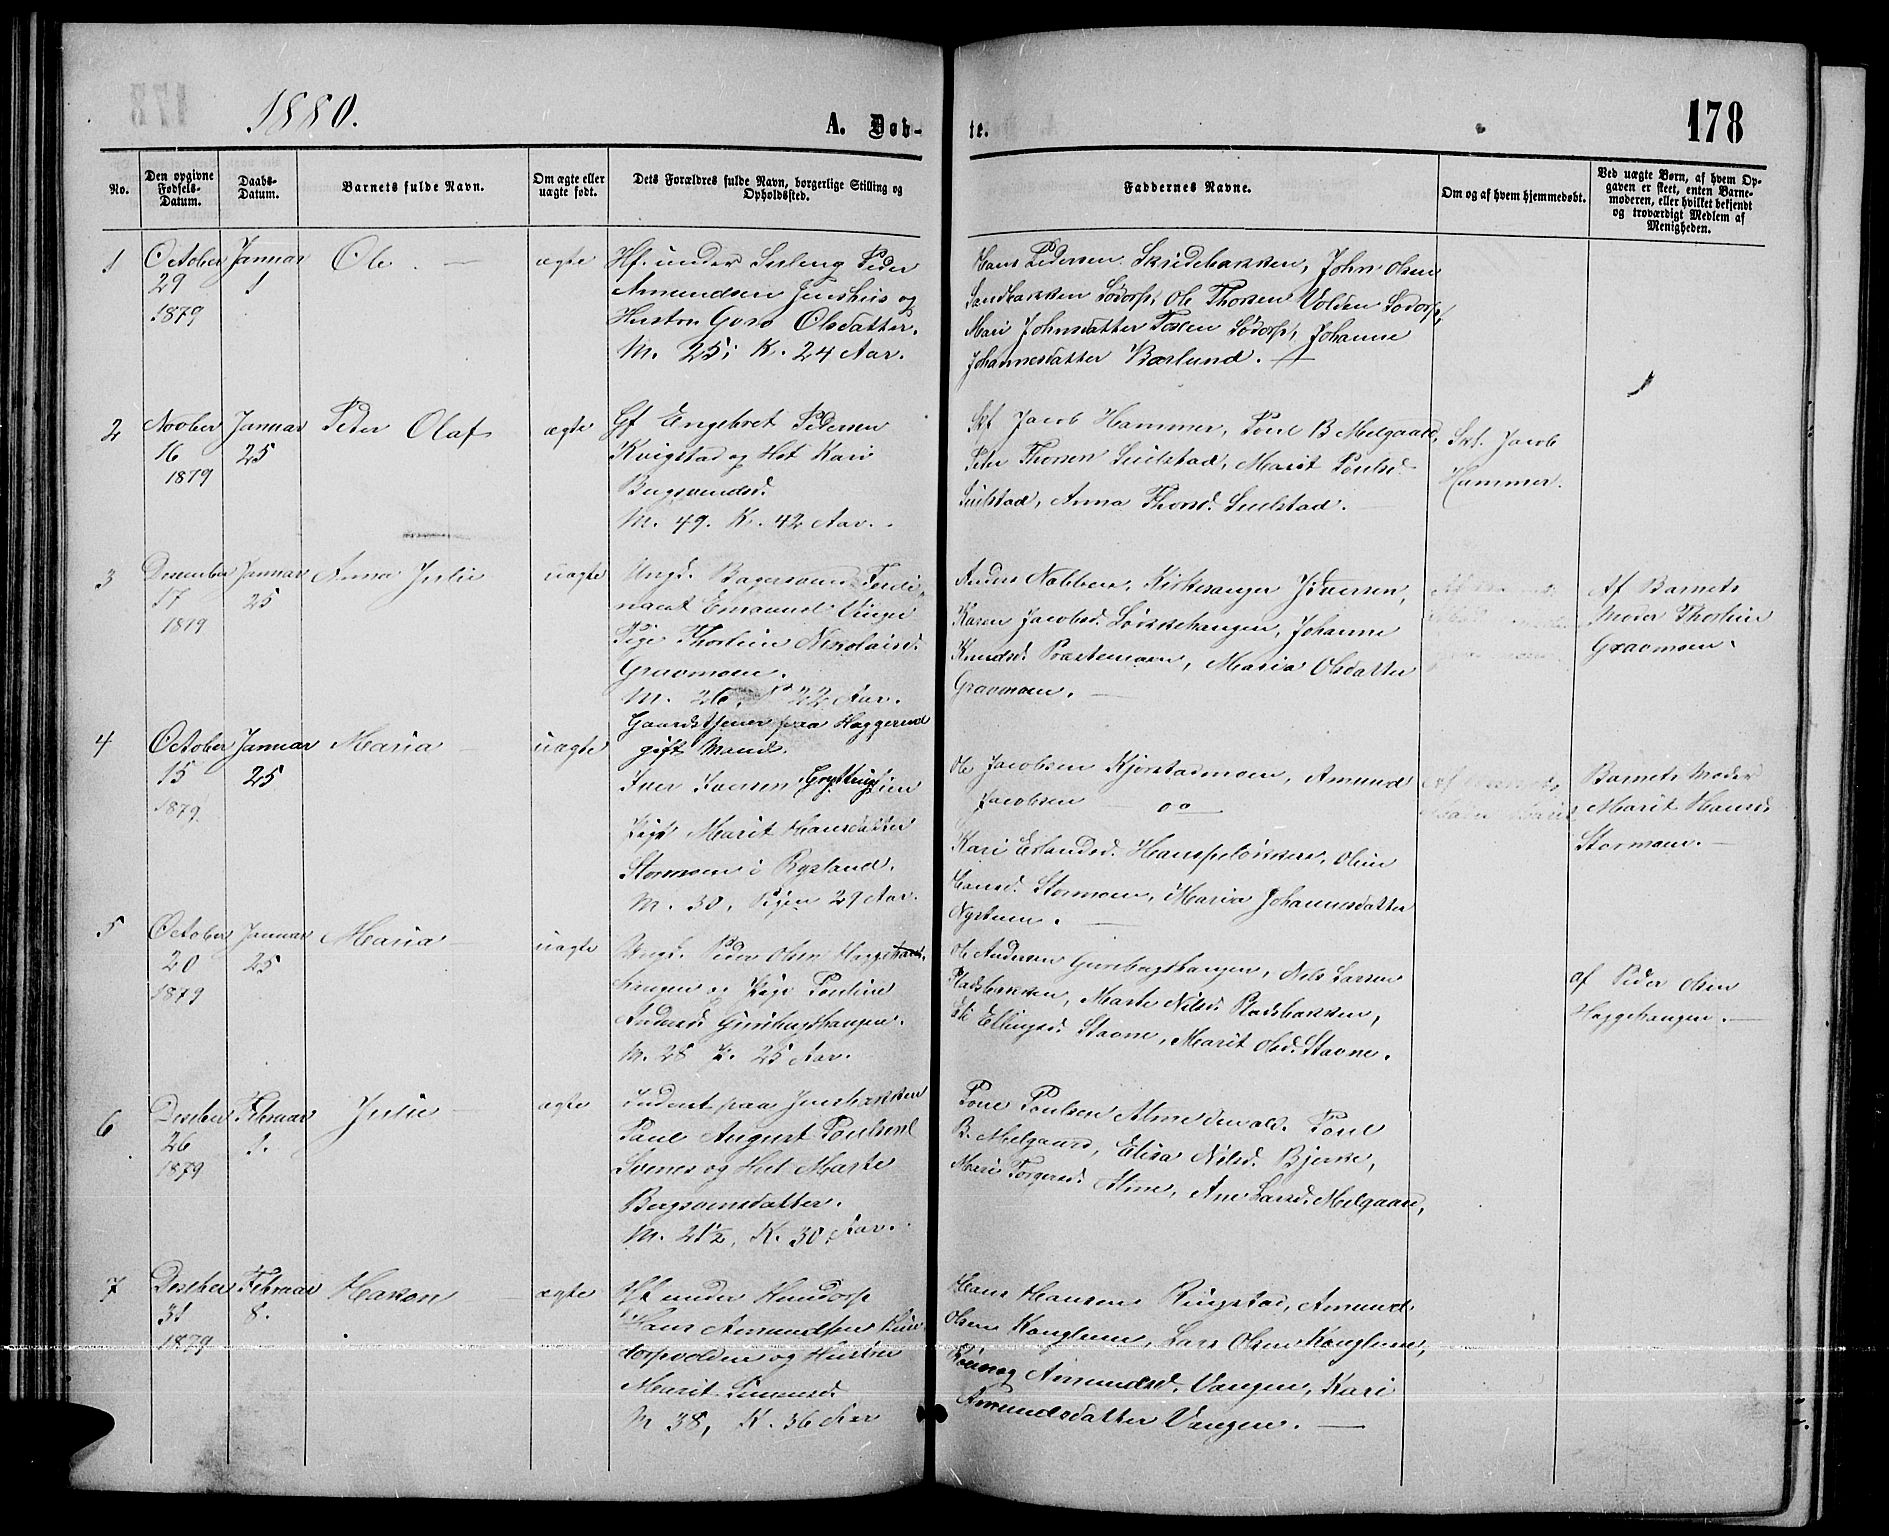 1880.
A. Døb-
te.
178
No.
Den opgivne Fødsels-Datum.
Daabs-Datum.
Barnets fulde Navn.
Om ægte eller uægte født.
Dets Forældres fulde Navn, borgerlige Stilling og Opholdssted.
Faddernes Navne.
Om og af hvem hjemmedøbt.
Ved uægte Børn, af hvem Opgaven er skeet, enten Barnemoderen, eller hvilket bekjendt og troværdigt Medlem af Menigheden.
1
October
29
1879
Januar
1
Ole
ægte
Hf. under Sisling Peder
Amundsen Jenshus og
Hustru Guro Olsdatter.
M. 25, K. 24 Aar.
Hans Pedersen Skridebakken, John Olsen
Sandbakken Sødorp, Ole Thorsen Volden Sødorp,
Mari Johnsdatter Sødorp, Johanne
Johannesdatter Børlund.
2
Novber
16
1879
Januar
25
Peder Olaf
ægte
Gf Engebret Pedersen
Kvigstad og Hst Kari
M. 49. K. 42 Aar.
Skf Jacob Hammer, Poul B Melgaard,
Peder Thorsen Seielstad, Marit Poulsd
Seielstad, Anna Thorsd. Seielstad.
Skf. Jacob
Hammer.
3
December
17
1879
Januar
25
Anna Julie
uægte
Ungk. Bagersvend Ferdi-
nant Emanuel
Pige Thorline Nicolaisd.
Graomoen.
M. 26, P 22 Aar.
Anders Nabben, Kirkesanger Iversen,
Karen Jacobsd. Løkkehaugen, Johanne
Knudsd. Præstemoen, Maria Olsdatter
Graomoen.
Af Barnets
Moder Thorline
Graomoen.
4
October
15
1879
Januar
25
Maria
uægte
Gaardstjener paa Haggerud
gift Mand.
Iver Iversen
Pige Marit Hansdatter
Stormoen i Rysland.
M. 30, Pigen 29 Aar.
Ole Jacobsen Kjørstadmoen, Amund
Jacobsen
Kari Erlandsd. Hanspeløkken, Oline
Hansd. Stormoen, Maria Johannesdatter
Nystuen.
Barnets Moder
Marit Hansd.
Stormoen.
5
October
20
1879
Januar
25
Maria
uægte
Ungk. Peder Olsen Hagge
haugen og Pige Pauline
Andersd
M. 28 P. 25 Aar.
Ole Andersen Nils Larsen
Pladsbakken, Marte Nilsd Pladsbakken,
Eli Ellingsd. Stavne, Marit Olsd. Stavne.
af Peder Olsen
Haggehaugen.
6
Desebr
26
1879
Februar
1.
Julie
ægte
Inderst paa Jensbakken
Paul August Poulsen
og Hst Marte
Bergsvensdatter.
M. 21½, K. 30 Aar.
Poul Poulsen Alme Poul
B. Melgaard, Elisa Nilsd. Bjerke,
Mari Torgersd. Alme, Ane Larsd. Melgaard,
7
Desebr
31
1879
Februar
8.
Hakon
ægte
Hf under Hundorp
Hans Amundsen Hun-
dorpvolden og Hustru
Marit Simensd.
M 38, K. 36 Aar
Hans Hansen Ringstad, Amund
Olsen Kongleun, Lars Olsen Kongleun,
Rønnog Amundsd. Vangen, Kari
Amundsdatter Vangen.